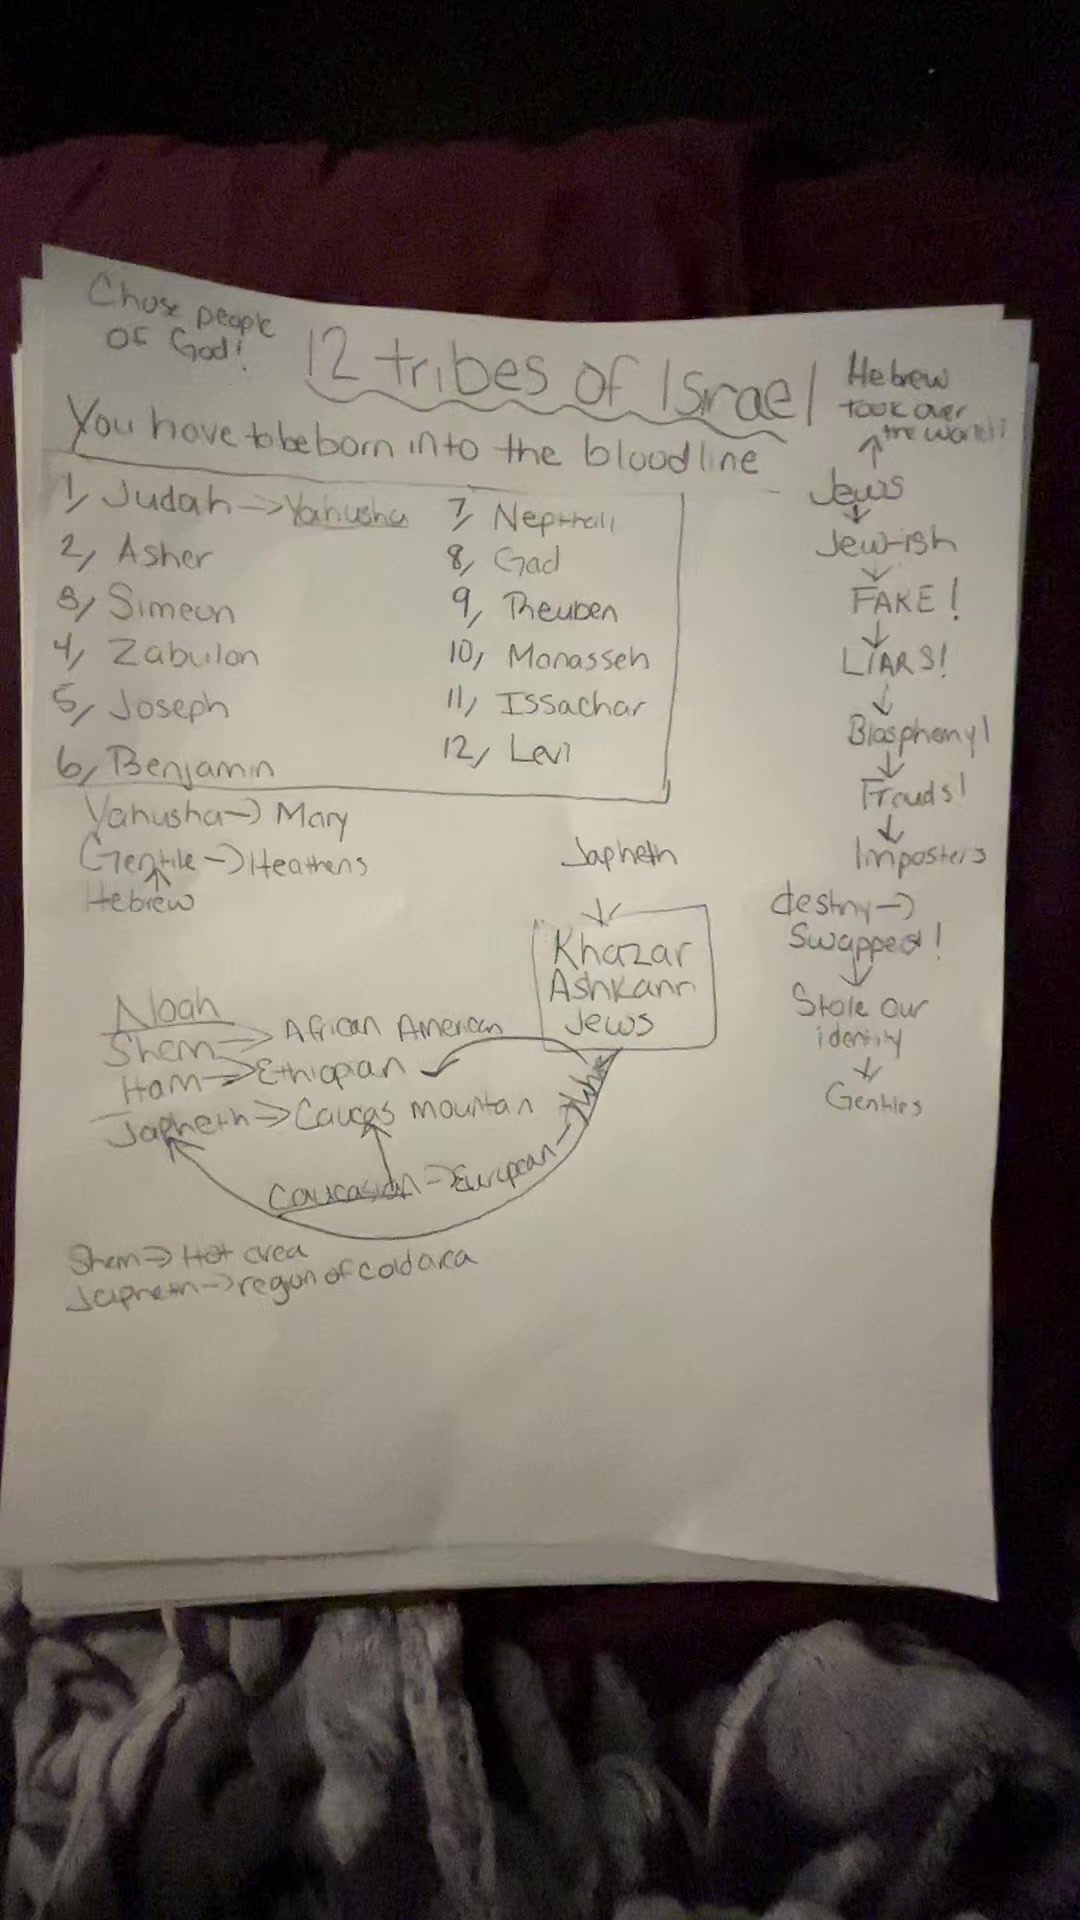 Chose people
of God!
12 tribes of Israel
You have to be born into the bloodline
1, Judah → Yahusha
2, Asher
3, Simeon
4, Zabulon
5, Joseph
6, Benjamin
7, Nepthali
8, Gad
9, Reuben
10, Manasseh
11, Issachar
12, Levi
Yahusha → Mary
Gentile → Heathens
Hebrew
Japheth
Khazar
Ashkann
Jews
Noah
Shem → African American
Ham → Ethiopian
Japheth → Caucas mountan
Caucasian → European →
Shem → Hot area
Japheth → region of cold area
Hebrew
took over
the world!
Jews
Jew-ish
FAKE!
LIARS!
Blasphemy!
Frauds!
Imposters
destny →
Swapped!
Stole our
identity
Gentiles